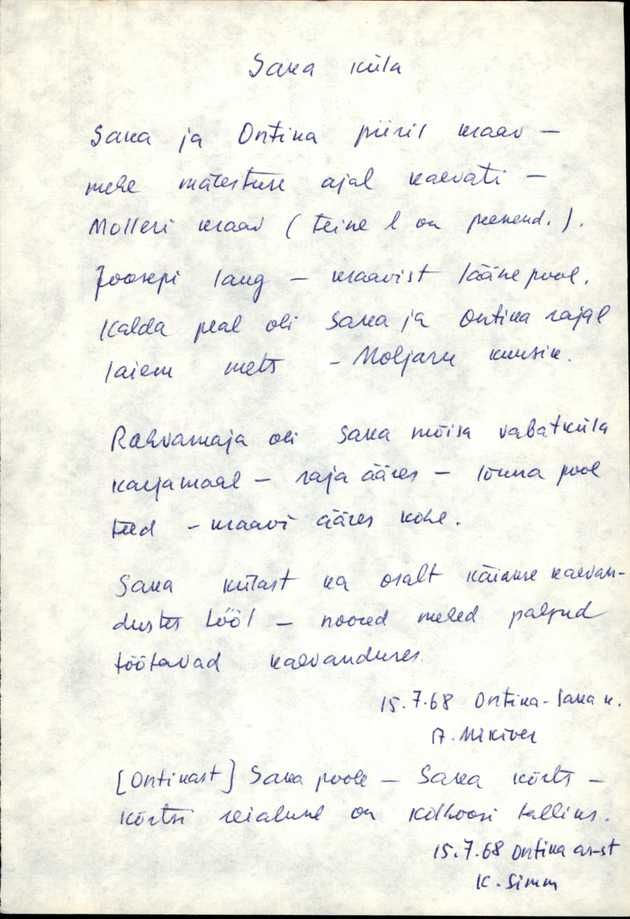 Saka küla
Saka ja Ontika piiril kraav —
mehe mälestuse ajal kaevati —
Molleri kraav (teine l on peenend.).
Joosepi lang — kraavist lääne pool.
Kalda peal oli Saka ja Ontika rajal
laiem mets - Moljaku kuusik.
Rahvamaja oli Saka mõisa vabatküla
karjamaal — raja ääres — lõuna pool
teed - kraavi ääres kohe.
Saka külast ka osalt käiakse kaevan-
dustes tööl — noored mehed paljud
töötavad kaevanduses.
15.7.68 Ontika-Saka k.
A. Mikiver
[Ontikast] Saka poole — Saka kõrts —
kõrtsi on kolhoosi talliks.
15.7.68 Ontika as-st
K. Simm